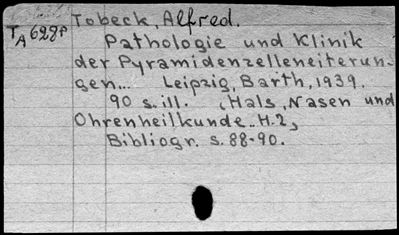 Tobeck, Alfred.
TA 628P
Pathologie und Klinik
der Pyramidenzelleneiterun-
gen... Leipzig, Barth, 1939.
90 s. ill. (Hals, Nasen und
Ohrenheilkunde.. H.2)
Bibliogr. s. 88-90.